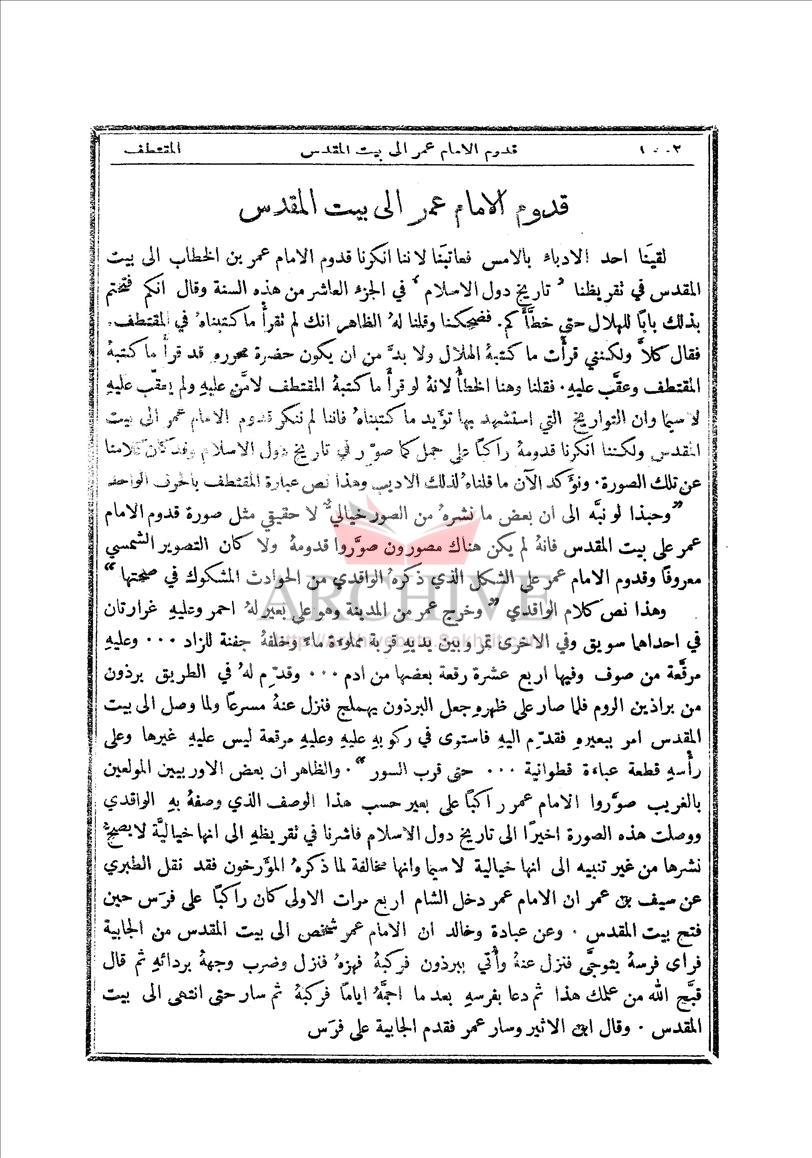 ١٠٠٢ قدوم الامام عمر الى بيت المقدس المقتطف
قدوم الامام عمر الى بيت المقدس
لقينَا احد الادباء بالامس فعاتبَنا لاننا انكرنا قدوم الامام عمر بن الخطاب الى بيت
المقدس في تقريظنا " تاريخ دول الاسلام " في الجزء العاشر من هذه السنة وقال انكم فتحتم
بذلك بابًا للهلال حتى خطَّأَكم. فضحكنا وقلنا لهُ الظاهر انك لم تقرأْ ما كتبناهُ في المقتطف.
فقال كلاَّ ولكنني قرأت ما كتبهُ الهلال ولا بدَّ من ان يكون حضرة محرره قد قرأَ ما كتبهُ
المقتطف وعقَّب عليهِ. فقلنا وهنا الخطأُ لانهُ لو قرأَ ما كتبهُ المقتطف لامَّن عليهِ ولم يعقّب عليهِ
لا سيما وان التواريخ التي استشهد بها تؤيد ما كتبناهُ فاننا لم ننكر قدوم الامام عمر الى بيت
المقدس ولكننا انكرنا قدومهُ راكبًا على جمل كما صوّر في تاريخ دول الاسلام وقد كان كلامنا
عن تلك الصورة. ونؤكد الآن ما قلناهُ لذلك الاديب وهذا نص عبارة المقتطف بالحرف الواحد
"وحبذا لو نبَّه الى ان بعض ما نشرهُ من الصور خيالي لا حقيقي مثل صورة قدوم الامام
عمر على بيت المقدس فانهُ لم يكن هناك مصورون صوَّروا قدومهُ ولا كان التصوير الشمسي
معروفًا وقدوم الامام عمر على الشكل الذي ذكرهُ الواقدي من الحوادث المشكوك في صحتها"
وهذا نص كلام الواقدي "وخرج عمر من المدينة وهو على بعير لهُ احمر وعليهِ غرارتان
في احداهما سويق وفي الاخرى تمر وبين يديهِ قربة مملوءة ماءً وخلفهُ جفنة للزاد ٠٠٠ وعليهِ
مرقَّعة من صوف وفيها اربع عشرة رقعة بعضها من ادم ٠٠٠ وقدّم لهُ في الطريق برذون
من براذين الروم فلما صار على ظهرهِ جعل البرذون يهملج فنزل عنهُ مسرعًا ولما وصل الى بيت
المقدس امر ببعيرهِ فقدّم اليهِ فاستوى في ركوبهِ عليهِ وعليهِ مرقعة ليس عليهِ غيرها وعلى
رأْسهِ قطعة عباءة قطوانية ٠٠٠ حتى قرب السور". والظاهر ان بعض الاوربيين المولعين
بالغريب صوَّروا الامام عمر راكبًا على بعير حسب هذا الوصف الذي وصفهُ بهِ الواقدي
ووصلت هذه الصورة اخيرًا الى تاريخ دول الاسلام فاشرنا في تقريظهِ الى انها خياليَّة لا يصحُّ
نشرها من غير تنبيه الى انها خيالية لا سيما وانها مخالفة لما ذكرهُ المؤرخون فقد نقل الطبري
عن سيف بن عمر ان الامام عمر دخل الشام اربع مرات الاولى كان راكبًا على فرَس حين
فتح بيت المقدس . وعن عبادة وخالد ان الامام عمر شخص الى بيت المقدس من الجابية
فراى فرسهُ يتوجَّى فنزل عنهُ وأُتي ببرذون فركبهُ فهزهُ فنزل وضرب وجههُ بردائهِ ثم قال
قبَّح الله من عملك هذا ثم دعا بفرسهِ بعد ما اجمَّهُ ايامًا فركبهُ ثم سار حتى انتهى الى بيت
المقدس . وقال ابن الاثير وسار عمر فقدم الجابية على فرَس
ARCHIVE